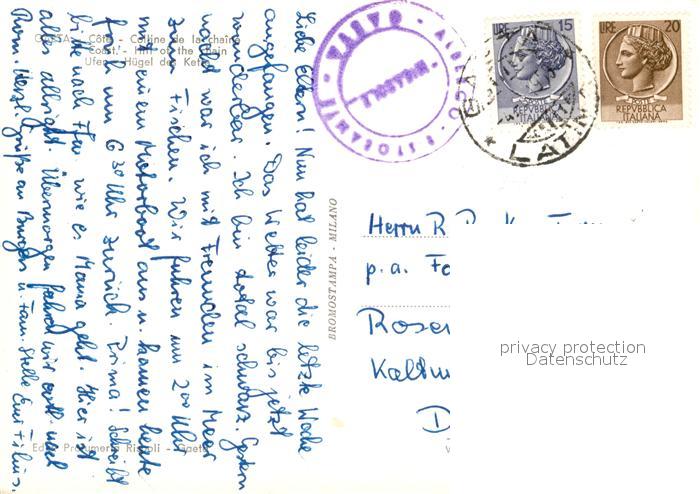 GAETA - Côte - Colline de la chaîne
Coast - Hill of the chain
Ufer - Hügel der Kette
Liebe Eltern! Nun hat leider die letzte Woche
angefangen. Das Wetter war bis jetzt
wunderbar. Ich bin total schwarz. Gestern
nacht war ich mit Freunden im Meer
zum Fischen. Wir fuhren um 2 00 Uhr
mit einem Motorboot aus u. kamen heute
früh um 6 30 Uhr zurück. Prima! Schreibt
bitte nach wie es Mama geht. Hier ist
alles allright. Übermorgen fahren wir evtl. nach
Rom. Herzl. Grüße an u. Fam. Stelle Eure
Ediz. Profumeria Rispoli - Gaeta
BROMOSTAMPA - MILANO
ALBERGO - RISTORANTE
MIRASOLE
GAETA
LATINA
LIRE 15
POSTE
REPVBBLICA
ITALIANA
LIRE 20
POSTE
REPVBBLICA
ITALIANA
Herrn R.
p. a.
Rosen
D
privacy protection
Datenschutz